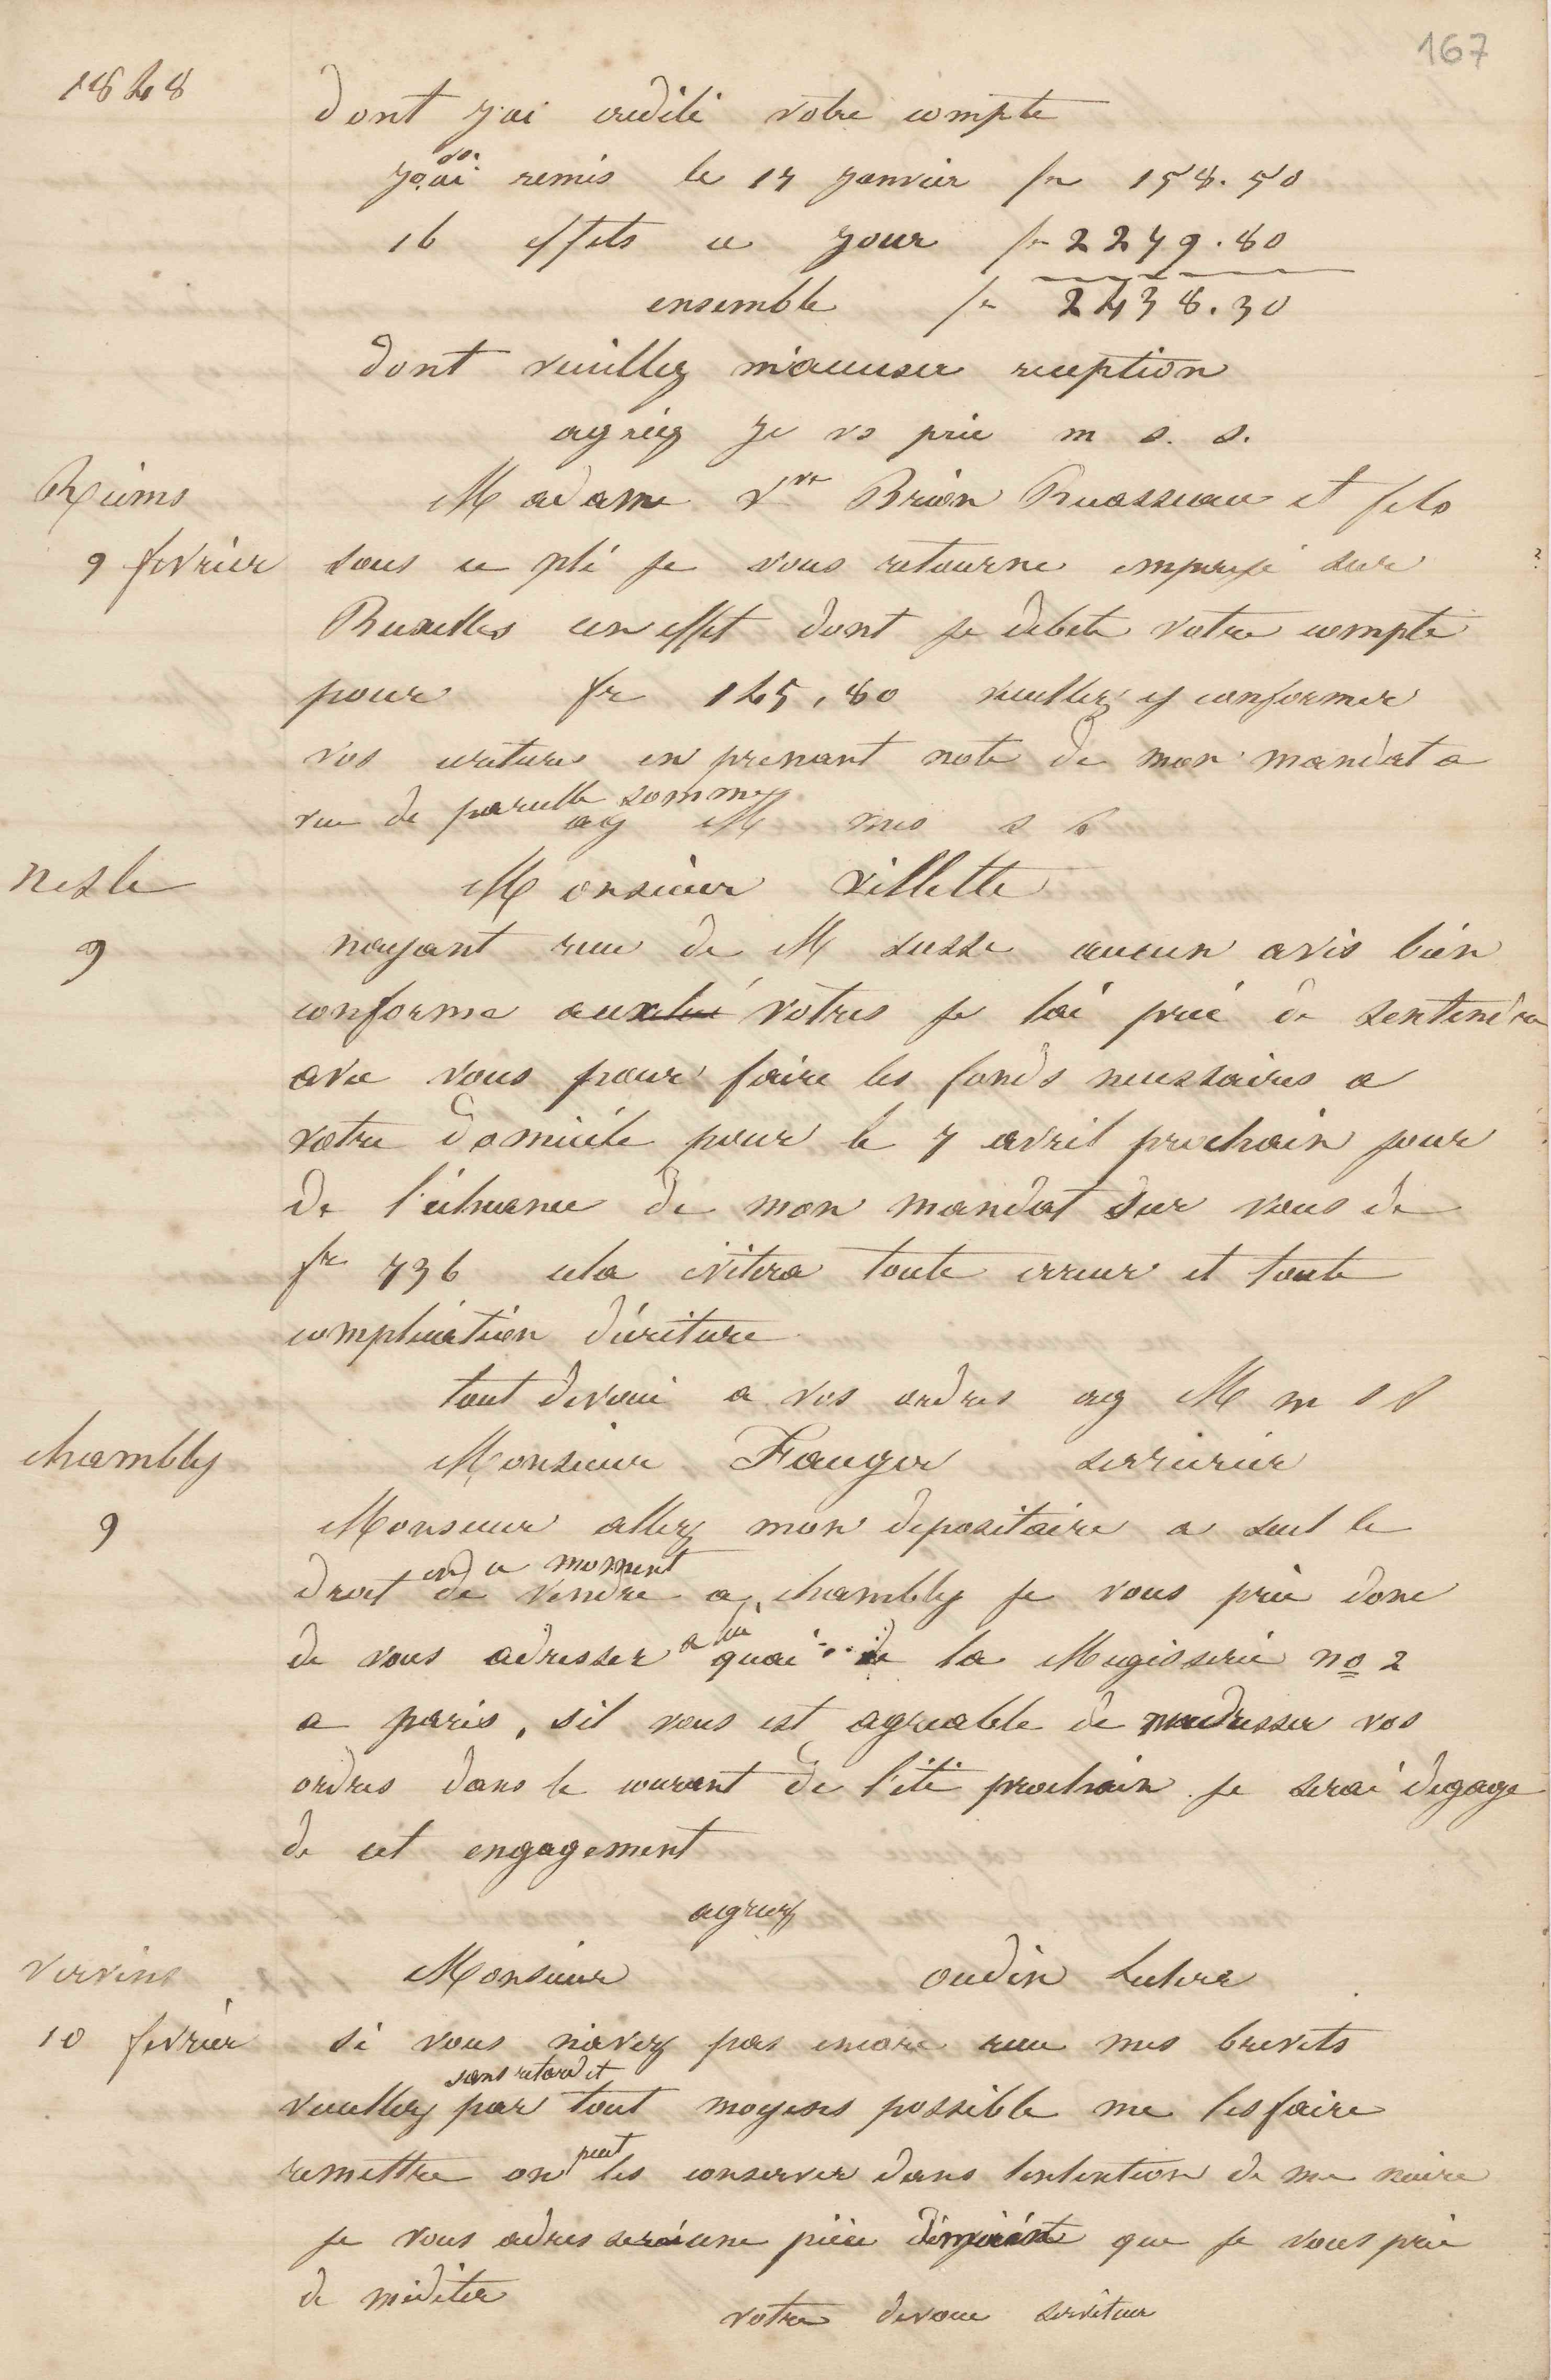 167
1848
dont j'ai credité votre compte
vs
j'ai remis le 17 janvier fr 158.50
16 effets ce jour fr 2279.80
ensemble fr 2438.30
dont veuillez m'accuser reception
agréez je vs prie m s. s.
Reims
Madame Vve Brion Ruasseau et fils
9 fevrier
sous ce pli je vous retourne impayé sur
Bruxelles un effet dont je debite votre compte
pour fr 145,80 veuillez y conformer
vos ecritures en prenant note de mon mandat a
vue de pareille somme
ag M mes s
nesle
Monsieur Villette
9
nayant recu de M susse aucun avis bien
conforme aux votres je lai prié de sentendre
avec vous pour faire les fonds necessaires a
votre domicile pour le 7 avril prochain jour
de l'echeance de mon mandat sur vous de
fr 736 cela evitera toute erreur et toute
complication d'ecriture
tout devoué a vos ordres ag M m s s
chambly
Monsieur Fauger serrurier
9
Monsieur allez mon depositaire a seul le
en ce moment
droit de vendre a chambly je vous prie donc
a lui
de vous adresser quai de la Megisserie no 2
a paris, sil vous est agreable de madresser vos
ordres dans le courant de l'été prochain je serai degage
de cet engagement
agreez
Vervins
Monsieur oudin
10 fevrier
si vous n'avez pas encore recu mes brevets
sans retard et
veuillez par tout moyens possible me les faire
peut
remettre on les conserver dans lintention de me nuire
je vous adresserai une piéce que je vous prie
de mediter
votre devoue serviteur